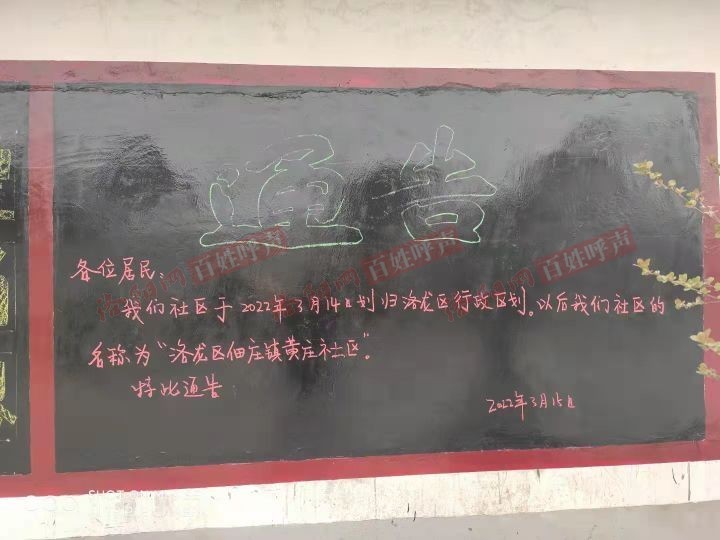 通告
各位居民：
我们社区于2022年3月14日划归洛龙区行政区划。以后我们社区的
名称为“洛龙区佃庄镇黄庄社区”。
特此通告
2022年3月15日
百姓呼声
百姓呼声
SHOT ON